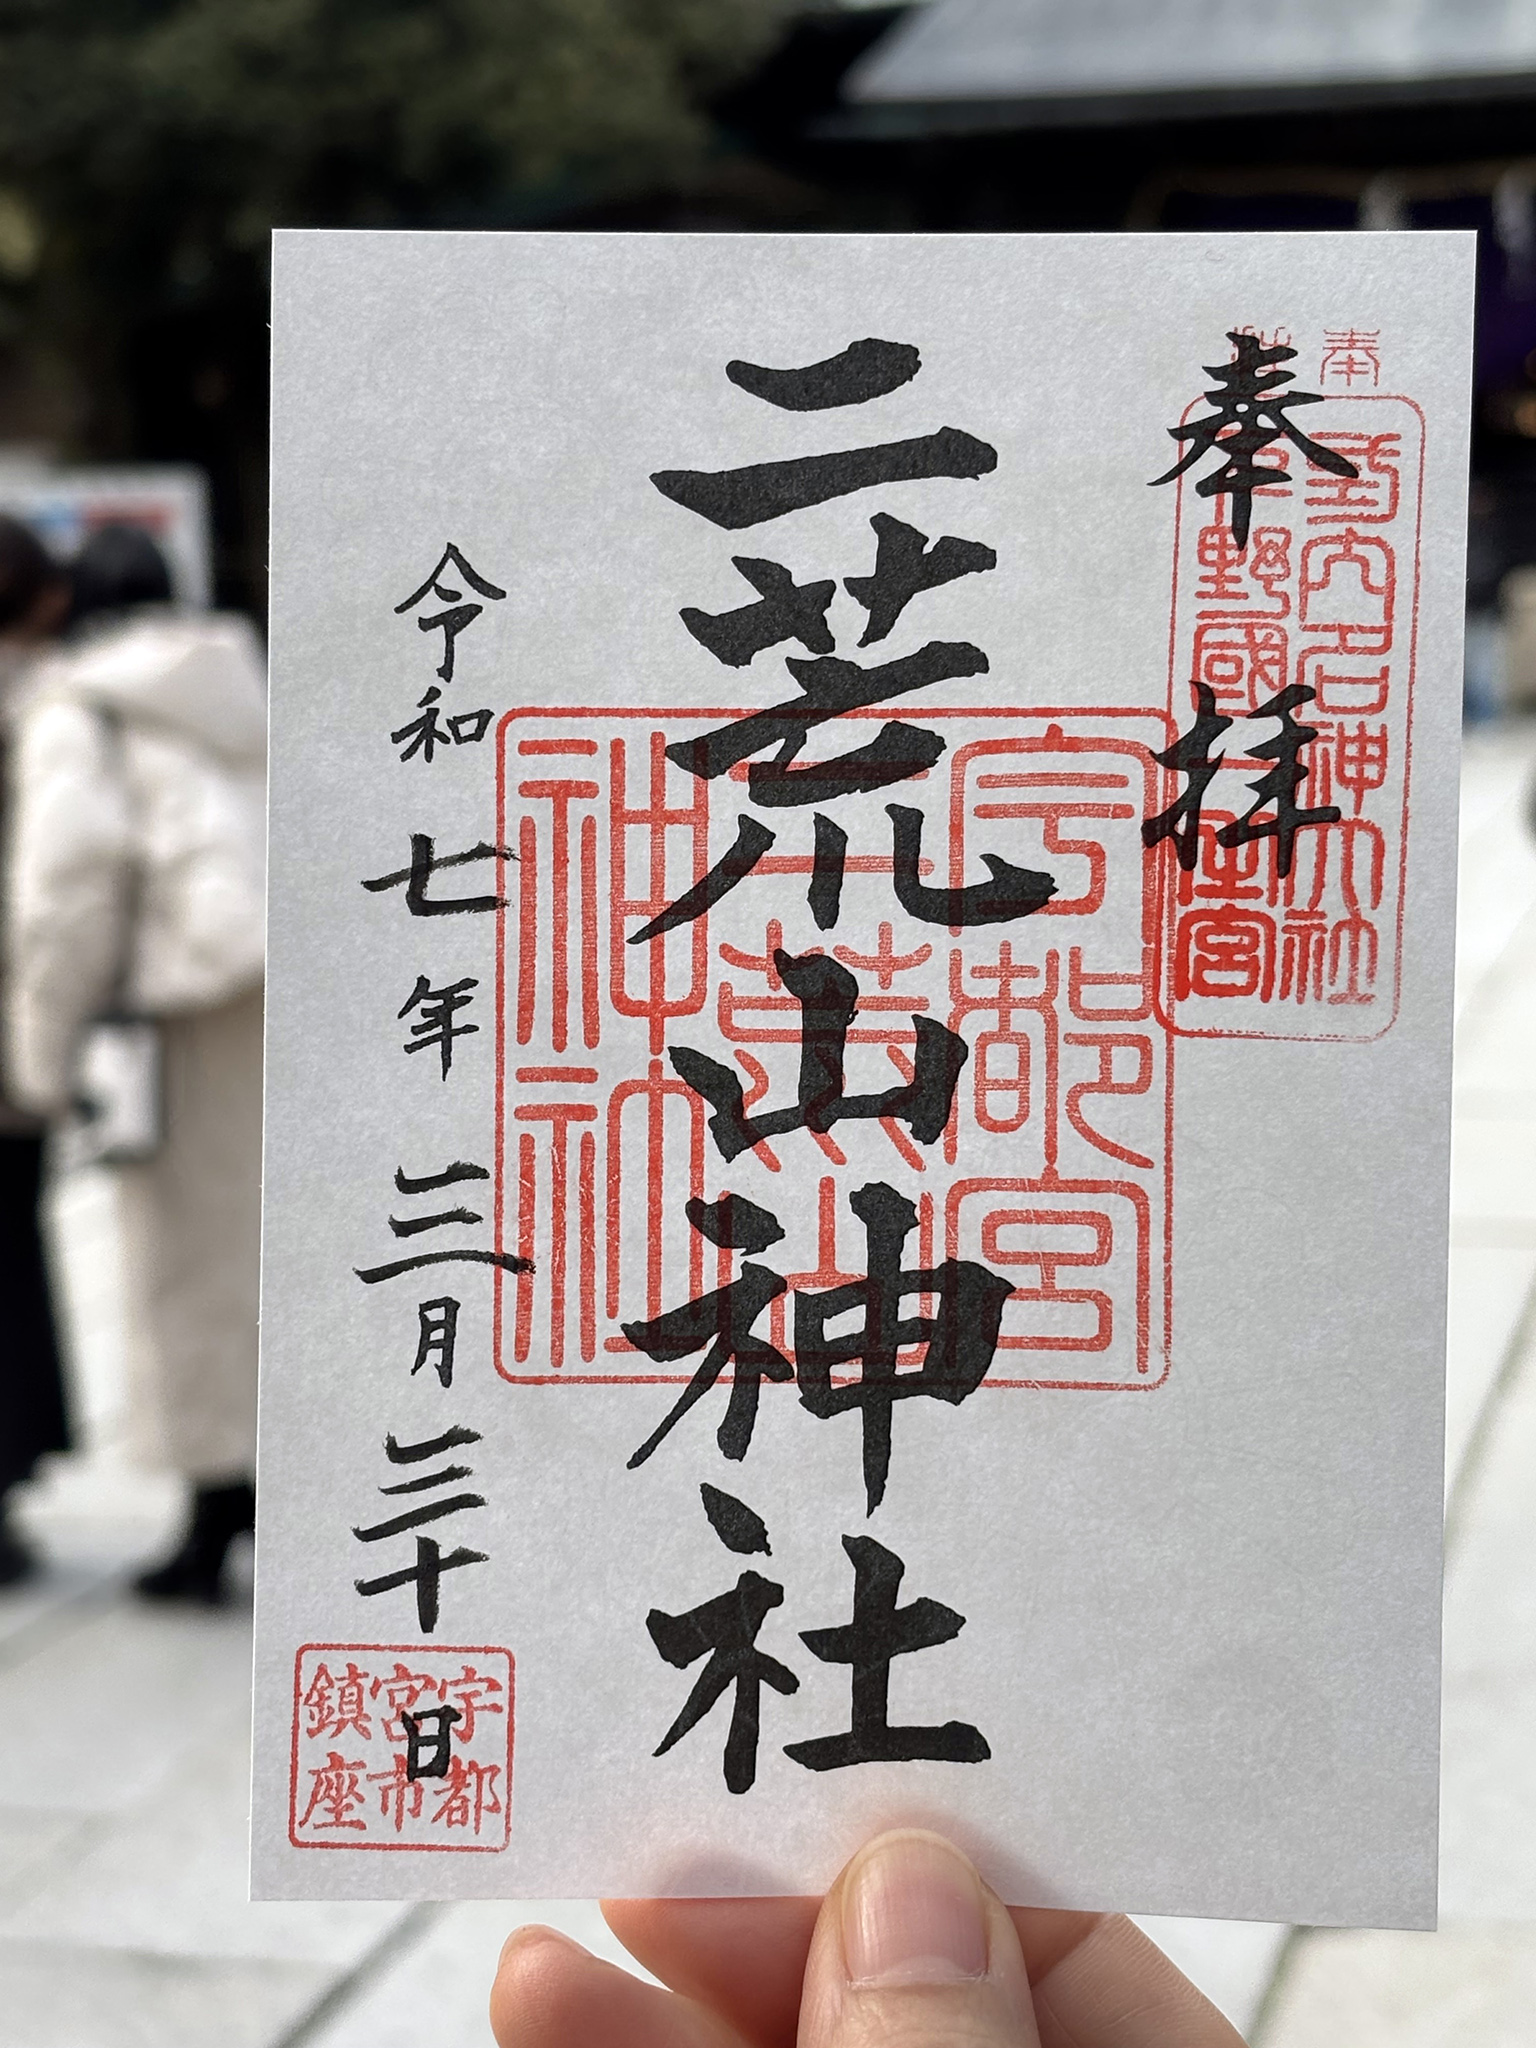 奉拝
式内名神大社
下野國一之宮
二荒山神社
宇都宮
二荒山
神社
令和七年三月三十日
宇都
宮市
鎮座